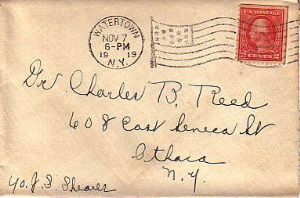 WATERTOWN
NOV 7
6-PM
1919
N.Y.
U.S. POSTAGE
2 CENTS 2
Dr Charles B. Treed
608 East Seneca St
Ithaca
N.Y.
℅ J. S. Shearer